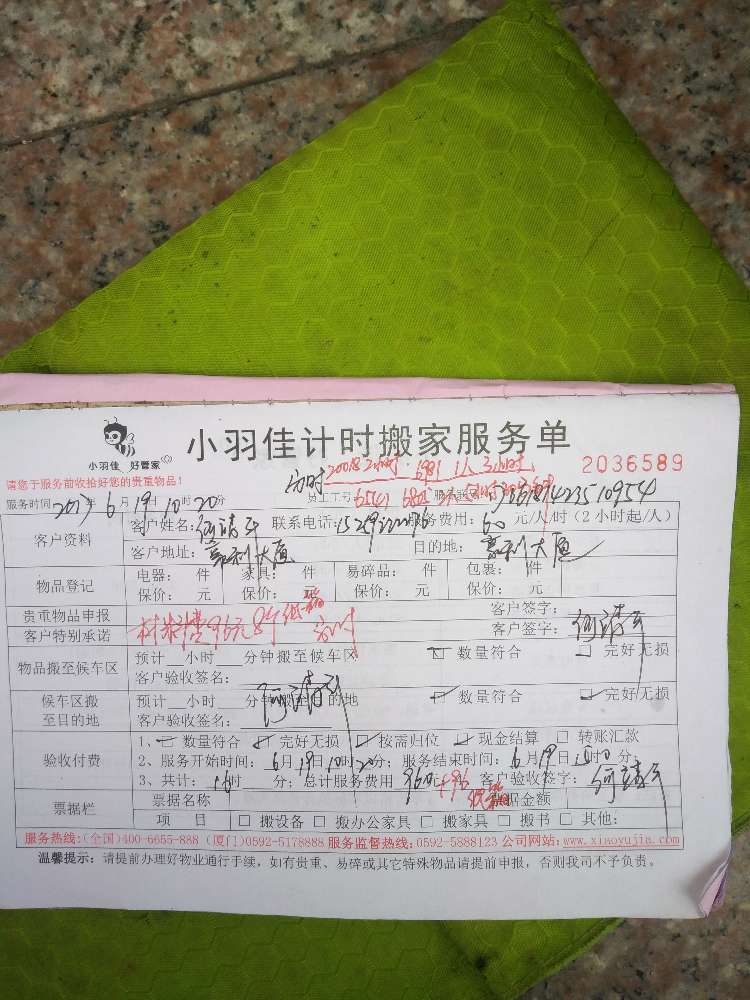 小羽佳 好管家
小羽佳计时搬家服务单
请您于服务前收拾好您的贵重物品!
2036589
服务时间:2017年6月19日10时20分
客户资料
客户姓名: 联系电话: 服务费用:60元/人/时(2小时起/人)
客户地址:嘉利大厦 目的地:嘉利大厦
物品登记
电器: 件 家具: 件 易碎品: 件 包裹: 件
保价: 元 保价: 元 保价: 元 保价: 元
贵重物品申报
材料费96元8个纸箱
客户签字:
客户特别承诺
客户签字:
物品搬至候车区
预计__小时__分钟搬至候车区 数量符合 完好无损
客户验收签名:
候车区搬至目的地
预计__小时__分钟搬至目的地 数量符合 完好无损
客户验收签名:
验收付费
1、 数量符合 完好无损 按需归位 现金结算 转账汇款
2、服务开始时间:6月19日10时20分;服务结束时间:6月19日 时 分;
3、共计:16时 分;总计服务费用960元+96 客户验收签字:
票据栏
票据名称 金额
项 目 搬设备 搬办公家具 搬家具 搬书 其他:
服务热线:(全国)400-6655-888 (厦门)0592-5178888 服务监督热线:0592-5888123 公司网站:www.xiaoyujia.com
温馨提示: 请提前办理好物业通行手续,如有贵重、易碎或其它特殊物品请提前申报,否则我司不予负责。